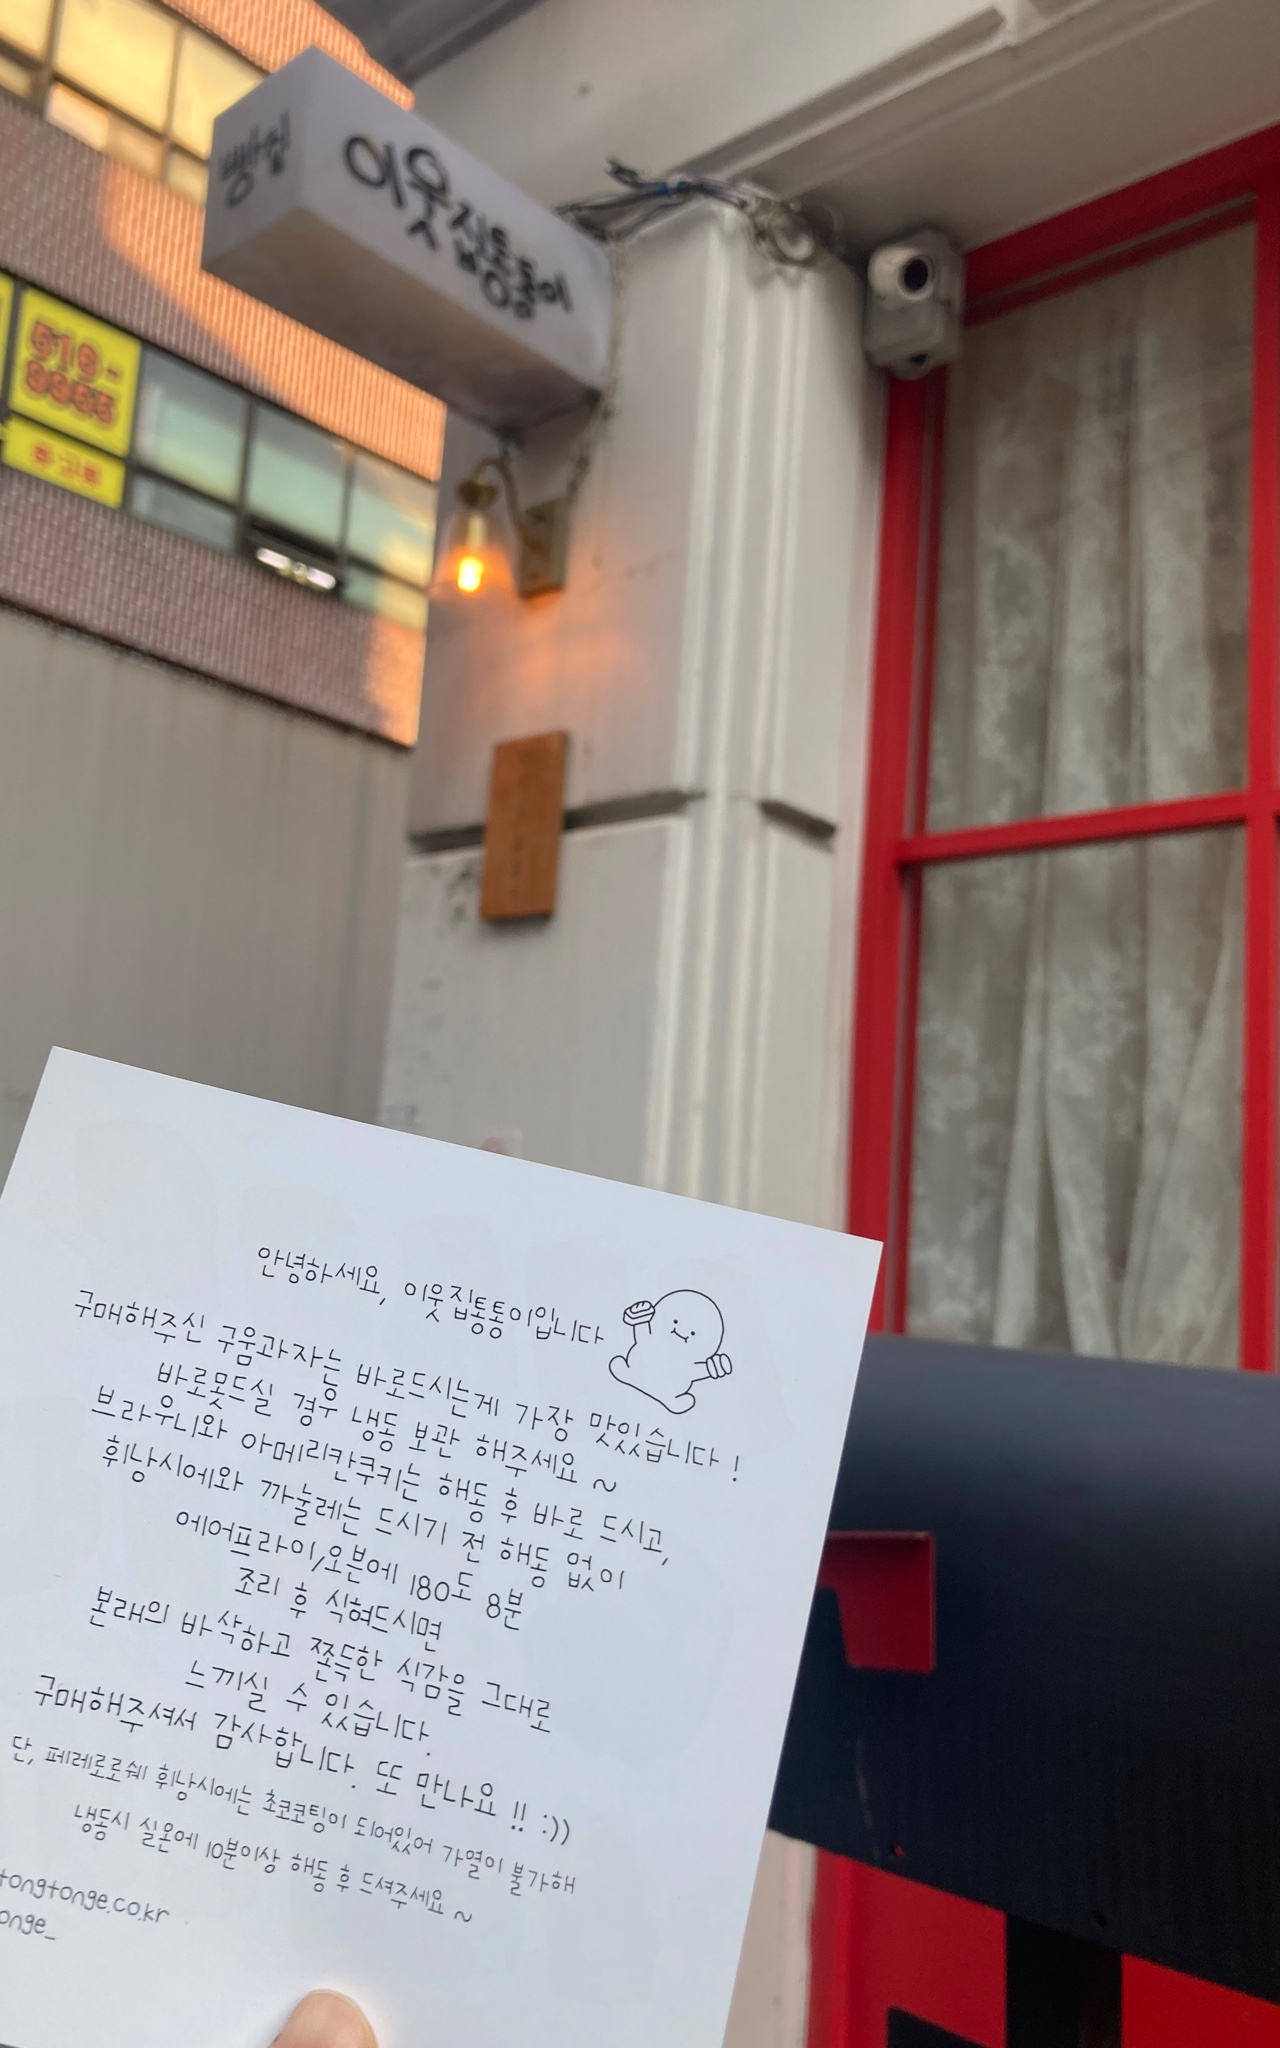 빵집
이웃집통통이
안녕하세요, 이웃집통통이입니다
구매해주신 구움과자는 바로드시는게 가장 맛있습니다 !
바로못드실 경우 냉동 보관 해주세요 ~
브라우니와 아메리칸쿠키는 해동 후 바로 드시고,
휘낭시에와 까눌레는 드시기 전 해동 없이
에어프라이/오븐에 180도 8분
조리 후 식혀드시면
본래의 바삭하고 쫀득한 식감을 그대로
느끼실 수 있습니다.
구매해주셔서 감사합니다. 또 만나요 !! :))
단, 페레로로쉐 휘낭시에는 초코코팅이 되어있어 가열이 불가해
냉동시 실온에 10분이상 해동 후 드셔주세요 ~
tongtonge.co.kr
onge_